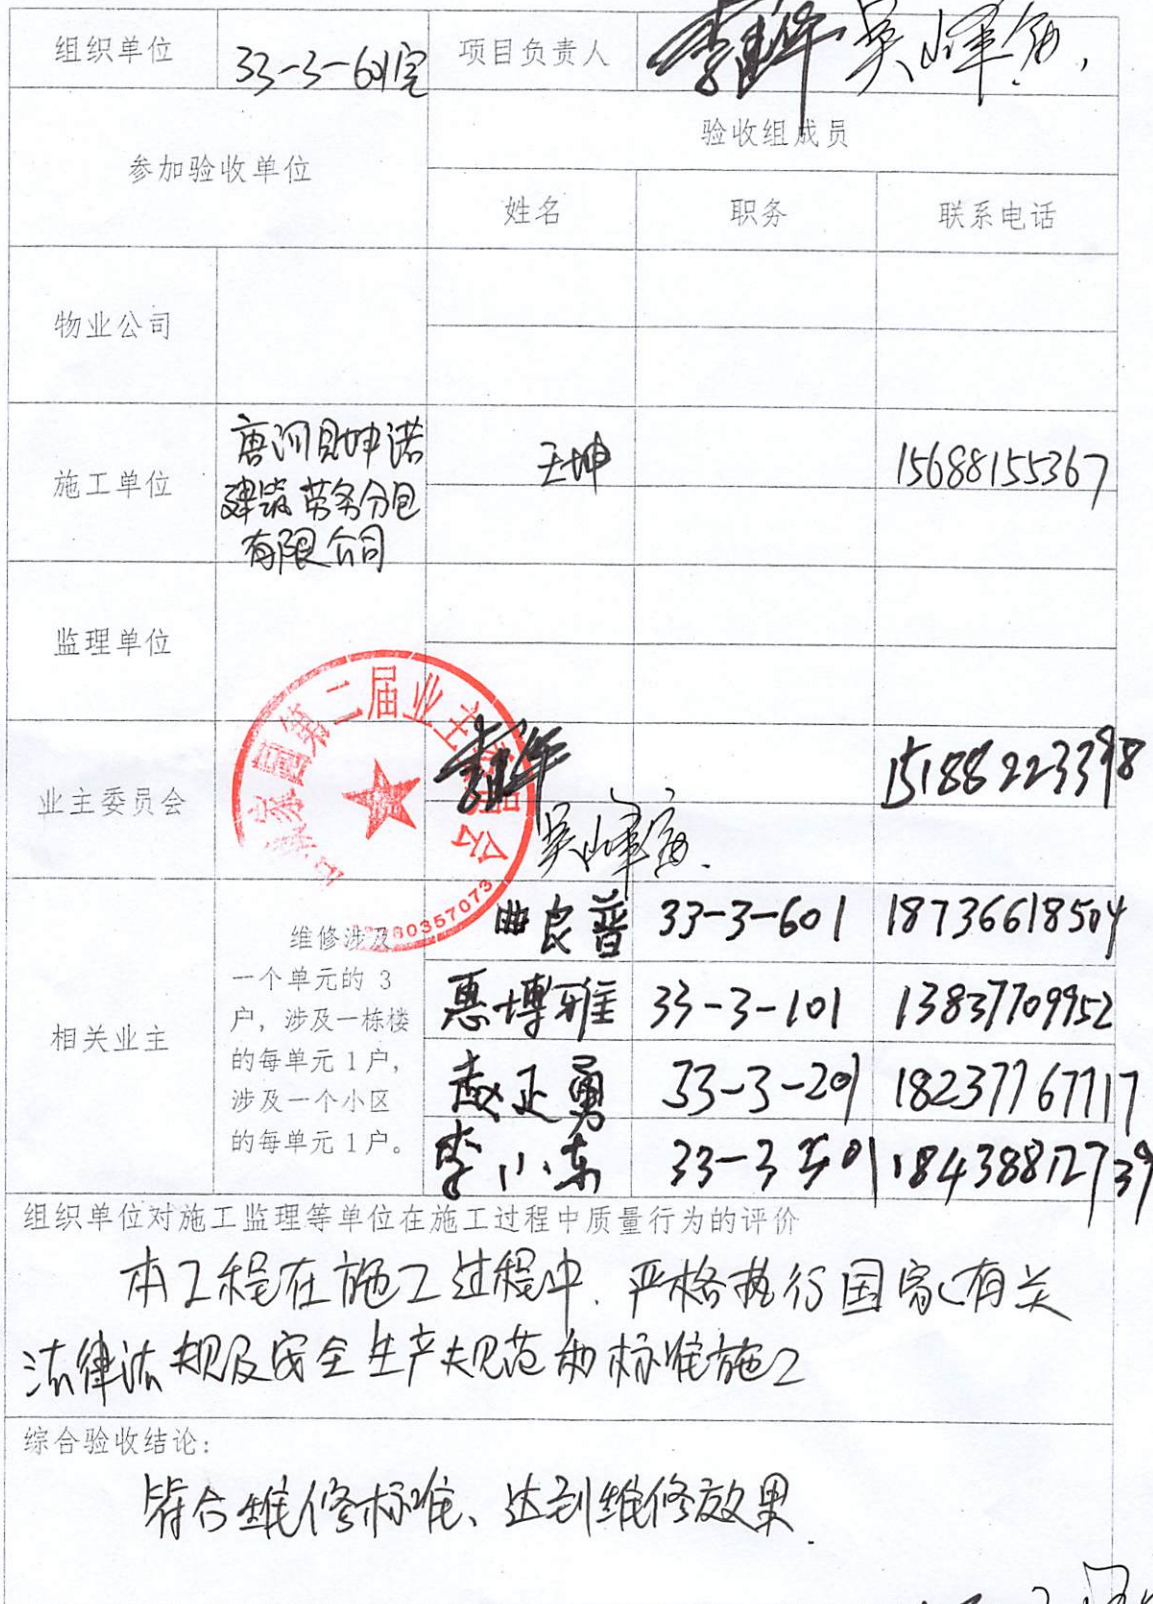 组织单位 33-3-601室 项目负责人 吴峰海.
参加验收单位 验收组成员
姓名 职务 联系电话
物业公司
施工单位 唐河财坤诺 王坤 15688155367
建筑劳务分包
有限公司
监理单位
第二届业主委员会
业主委员会 15188223398
吴峰海.
80357073
相关业主
维修涉及
一个单元的 3
户，涉及一栋楼
的每单元 1 户，
涉及一个小区
的每单元 1 户。
曲良普 33-3-601 18736618504
惠博雅 33-3-101 13837709952
赵正勇 33-3-201 18237767717
李小东 33-3 501 18438812739
组织单位对施工监理等单位在施工过程中质量行为的评价
本工程在施工过程中、严格执行国家有关
法律法规及安全生产规范和标准施工
综合验收结论：
符合维修标准、达到维修效果.